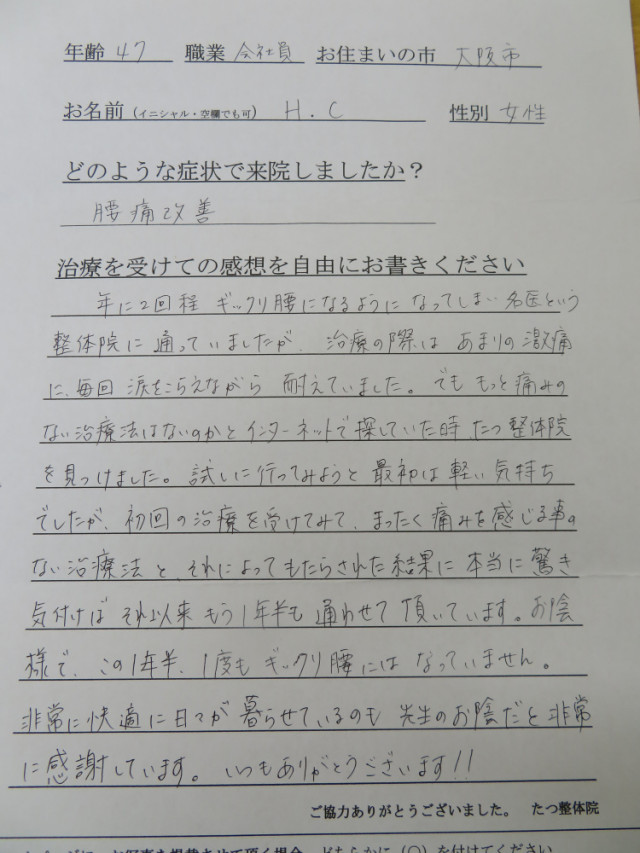 年齢 47 職業 会社員 お住まいの市 大阪市
お名前(イニシャル・空欄でも可) H.C 性別 女性
どのような症状で来院しましたか?
腰痛改善
治療を受けての感想を自由にお書きください
年に2回程 ギックリ腰になるようになってしまい 名医という
整体院に通っていましたが 治療の際は あまりの激痛
に、毎回 涙をこらえながら 耐えていました。でも もっと痛みの
ない治療法はないのかとインターネットで探していた時、たつ整体院
を見つけました。試しに行ってみようと 最初は軽い気持ち
でしたが、初回の治療を受けてみて、まったく痛みを感じる事の
ない治療法と、それによってもたらされた結果に本当に驚き
気付けば それ以来 もう1年半も 通わせて 頂いています。お陰
様で、この1年半、1度も ギックリ腰には なっていません。
非常に快適に日々が 暮らせているのも 先生のお陰だと非常
に感謝しています。 いつもありがとうございます!!
ご協力ありがとうございました。 たつ整体院
お写真を掲載させて頂く場合 どちらかに(○)を付けてください